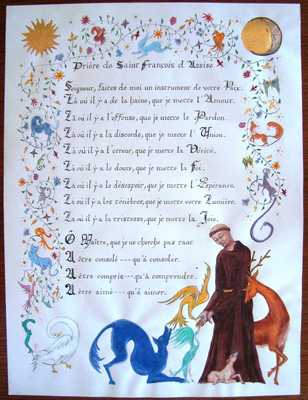 Prière de Saint François d'Assise
Seigneur, faites de moi un instrument de votre Paix.
Là où il y a de la haine, que je mette l'Amour.
Là où il y a l'offense, que je mette le Pardon.
Là où il y a la discorde, que je mette l'Union.
Là où il y a l'erreur, que je mette la Vérité.
Là où il y a le doute, que je mette la Foi.
Là où il y a le désespoir, que je mette l'Espérance.
Là où il y a les ténèbres, que je mette votre Lumière.
Là où il y a la tristesse, que je mette la Joie.
Ô Maître, que je ne cherche pas tant
À être consolé --- qu'à consoler.
À être compris --- qu'à comprendre.
À être aimé --- qu'à aimer.